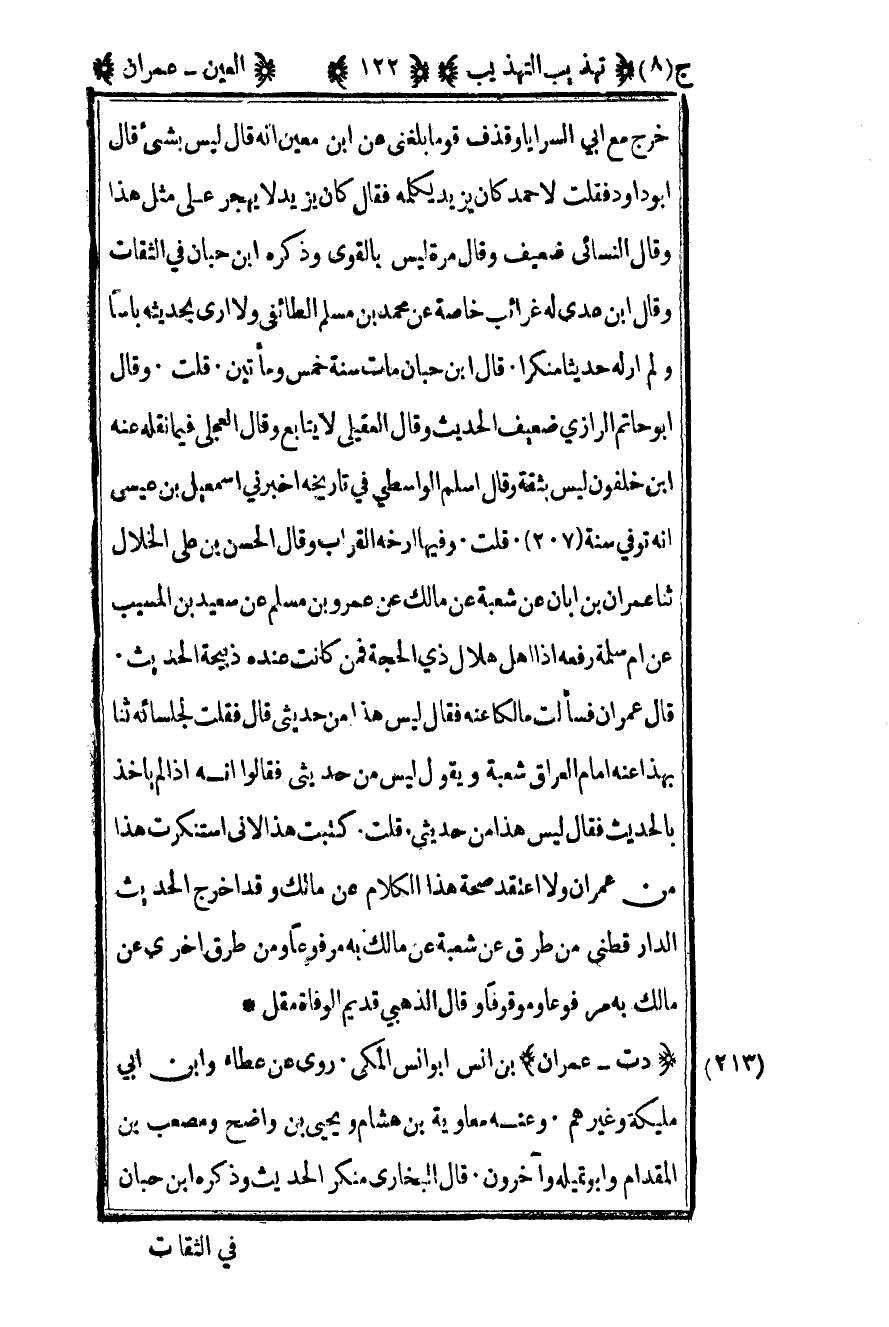 ج (٨) ﴿ تهذيب التهذيب ﴾ ﴿ ١٢٢ ﴾ ﴿ العين - عمران ﴾
خرج مع ابي السرايا وقذف قوما بلغنى عن ابن معين انه قال ليس بشئ قال
ابوداود فقلت لاحمد كان يزيد يكلمه فقال كان يزيد لا يهجر على مثل هذا
وقال النسائى ضعيف وقال مرة ليس بالقوى وذكره ابن حبان في الثقات
وقال ابن عدى له غرائب خاصة عن محمد بن مسلم الطائفى ولا ارى بحديثه باسًا
ولم ارله حديثا منكرا · قال ابن حبان مات سنة خمس ومأتين · قلت · وقال
ابو حاتم الرازي ضعيف الحديث وقال العقيلى لا يتابع وقال العجلى فيما نقله عنه
ابن خلفون ليس بثقة وقال اسلم الواسطي في تاريخه اخبرني اسمعيل بن عيسى
انه توفي سنة (٢٠٧) · قلت · وفيها ارخه القراب وقال الحسن بن على الخلال
ثنا عمران بن ابان عن شعبة عن مالك عن عمرو بن مسلم عن سعيد بن المسيب
عن ام سلمة رفعه اذا اهل هلال ذي الحجة فمن كانت عنده ذبيحة الحديث ·
قال عمران فسألت مالكا عنه فقال ليس هذا من حديثى قال فقلت لجلسائه ثنا
بهذا عنه امام العراق شعبة ويقول ليس من حديثى فقالوا انه اذا لم ياخذ
بالحديث فقال ليس هذا من حديثي · قلت · كتبت هذا لانى استنكرت هذا
من عمران ولا اعتقد صحة هذا الكلام عن مالك وقد اخرج الحديث
الدار قطني من طرق عن شعبة عن مالك به مرفوعًا ومن طرق اخرى عن
مالك به مرفوعا وموقوفًا وقال الذهبي قديم الوفاة مقل *
(٢١٣) ﴿ دت - عمران ﴾ بن انس ابوانس المكى · روى عن عطاء وابن ابي
مليكة وغيرهم · وعنه معاوية بن هشام ويحيى بن واضح ومصعب بن
المقدام وابوتميله وآخرون · قال البخارى منكر الحديث وذكره ابن حبان
في الثقات